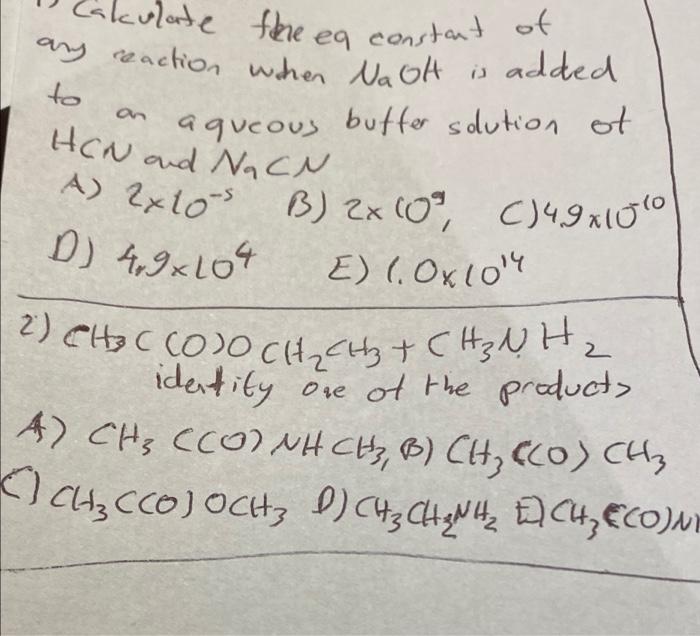 1) Calculate the eq constant of
any reaction when NaOH is added
to an aqueous buffer solution of
HCN and NaCN
A) 2x10⁻⁵ B) 2x10⁹, C) 4.9x10⁻¹⁰
D) 4.9x10⁴ E) 1.0x10¹⁴
2) CH3C(O)OCH2CH3 + CH3NH2
identify one of the products
A) CH3C(O)NHCH3, B) CH3C(O)CH3
C) CH3C(O)OCH3 D) CH3CH2NH2 E) CH3C(O)N